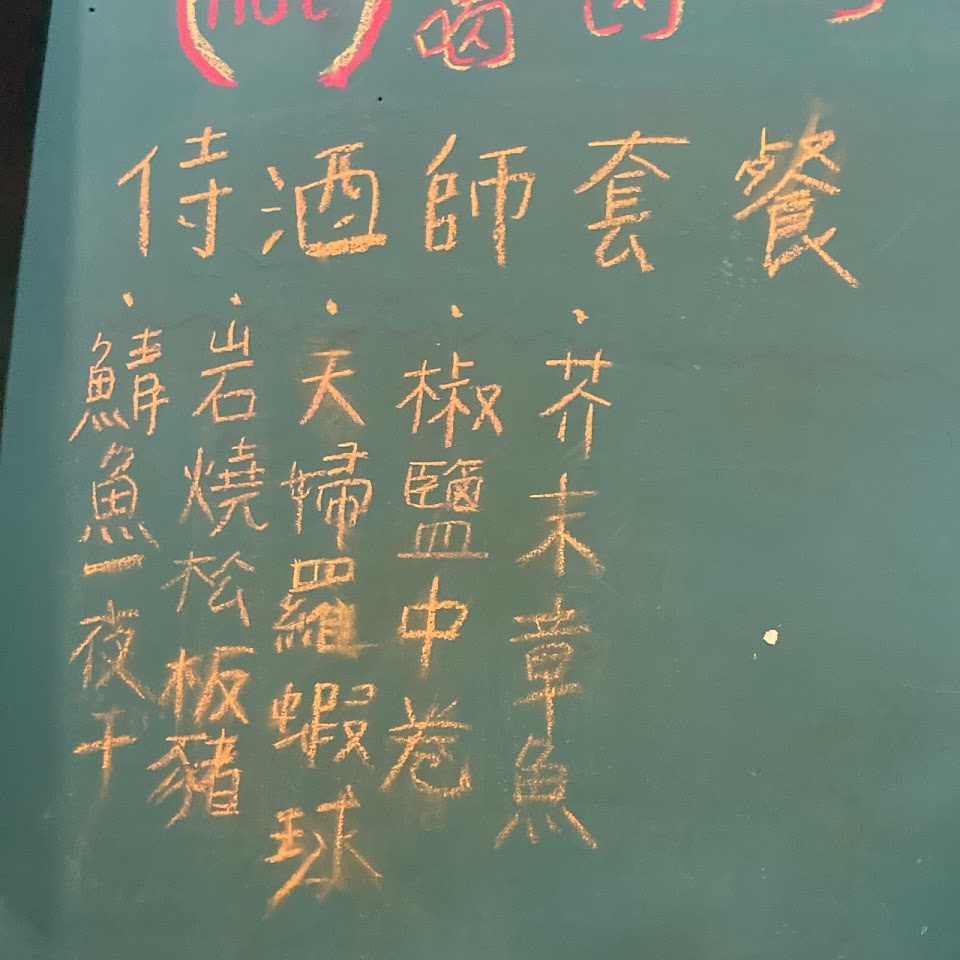 侍酒師套餐
·鯖魚一夜干
·岩燒松板豬
·天婦羅蝦球
·椒鹽中卷
·芥末章魚